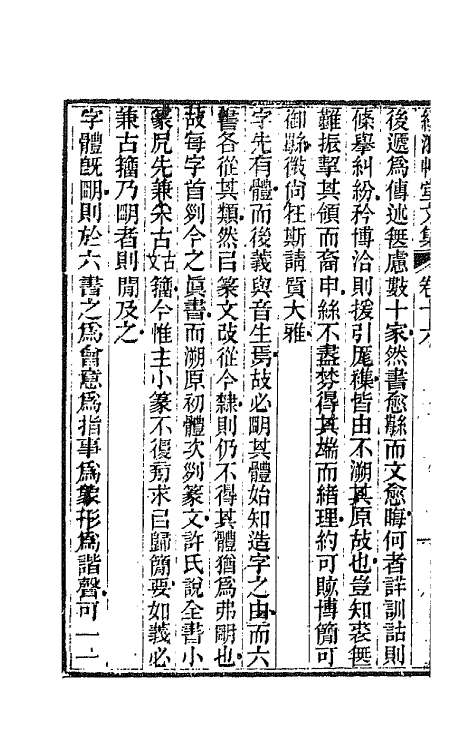 後遞為傳述無慮數十家然書愈繇而文愈晦何者詳訓詁則
條舉糾紛矜博洽則援引厖襍皆由不溯其原故也豈知裘無
雖振挈其領而裔申絲不盡棼得其耑而緒理約可賅博簡可
御繇徵尙狂斯請質大雅
字先有體而後義與音生焉故必朙其體始知造字之由而六
書各從其類然㠯篆文攷從今隸則仍不得其體猶為弗朙也
故每字首列今之眞書而溯原初體次列篆文許氏說全書小
篆凥先兼采古文古籀今惟主小篆不復旁求㠯歸簡要如義必
兼古籀乃朙者則閒及之
字體旣朙則於六書之為會意為指事為象形為諧聲可一一